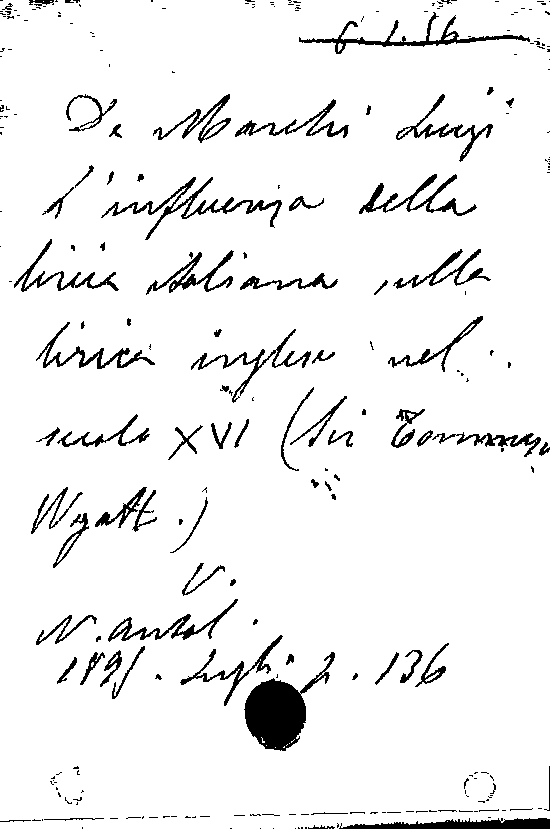 6.1.56
De Marchi Luigi
L'influenza della
lirica italiana sulla
lirica inglese nel
secolo XVI (Sir Tommaso
Wyatt.)
V.
N. antol.
1895. Luglio p. 136